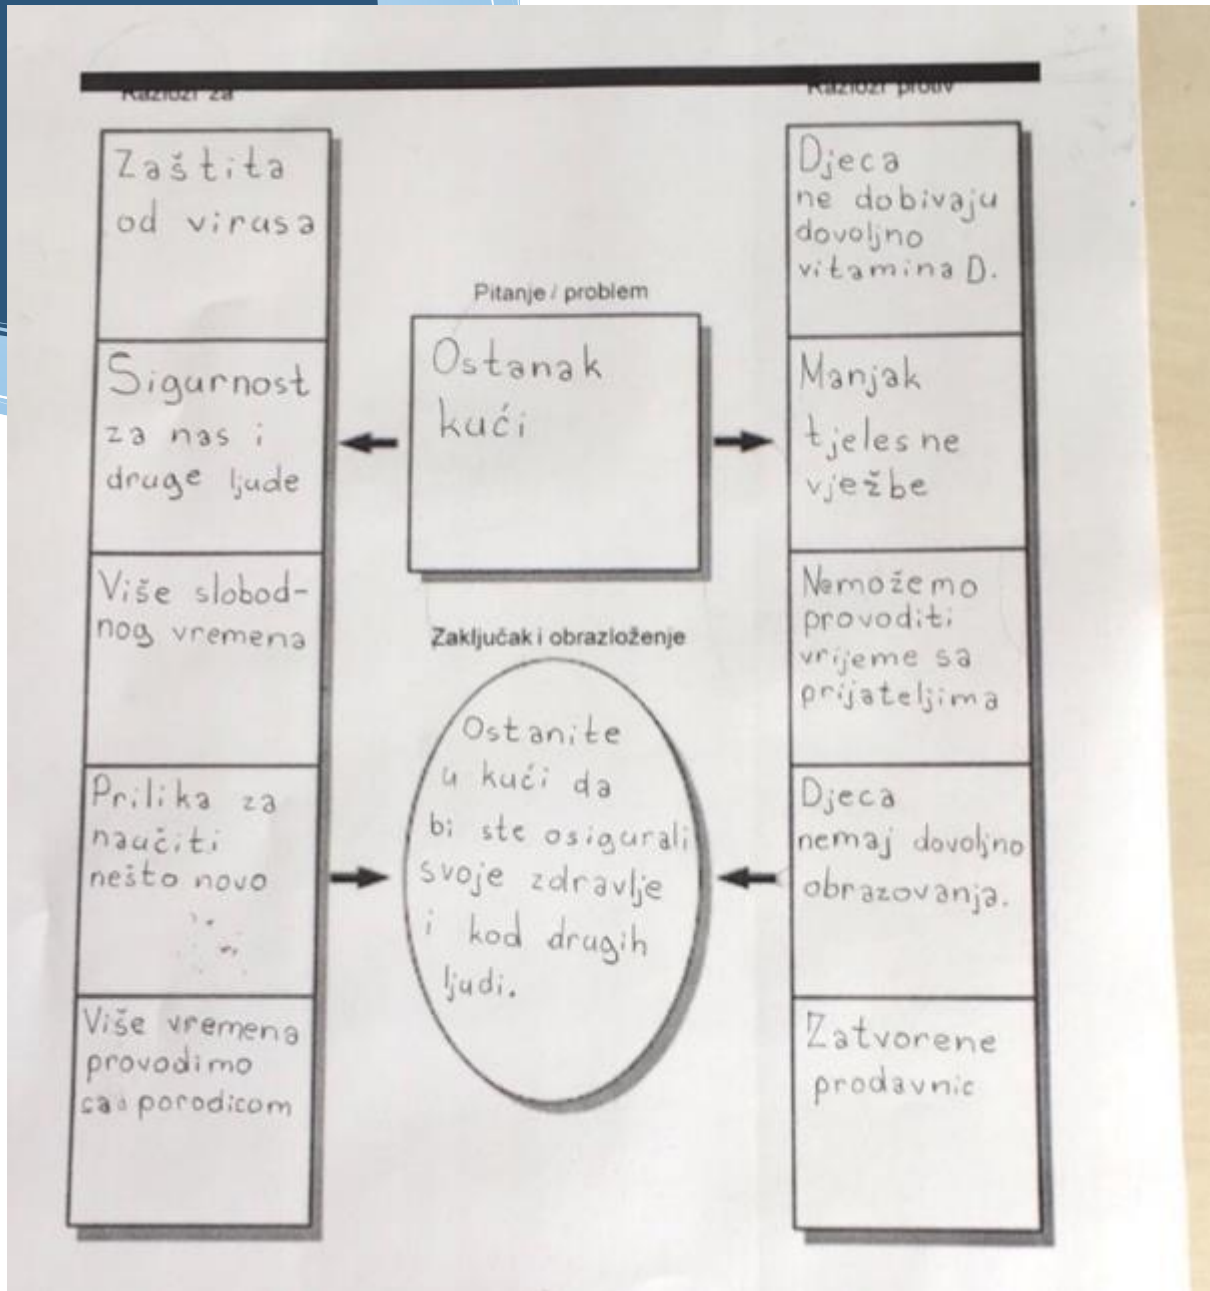 Razlozi za
Zaštita
od virusa
Sigurnost
za nas i
druge ljude
Više slobod-
nog vremena
Prilika za
naučiti
nešto novo
Više vremena
provodimo
sa porodicom
Pitanje / problem
Ostanak
kući
Zaključak i obrazloženje
Ostanite
u kući da
bi ste osigurali
svoje zdravlje
i kod drugih
ljudi.
Razlozi protiv
Djeca
ne dobivaju
dovoljno
vitamina D.
Manjak
tjelesne
vježbe
Nemožemo
provoditi
vrijeme sa
prijateljima
Djeca
nemaj dovoljno
obrazovanja.
Zatvorene
prodavnic